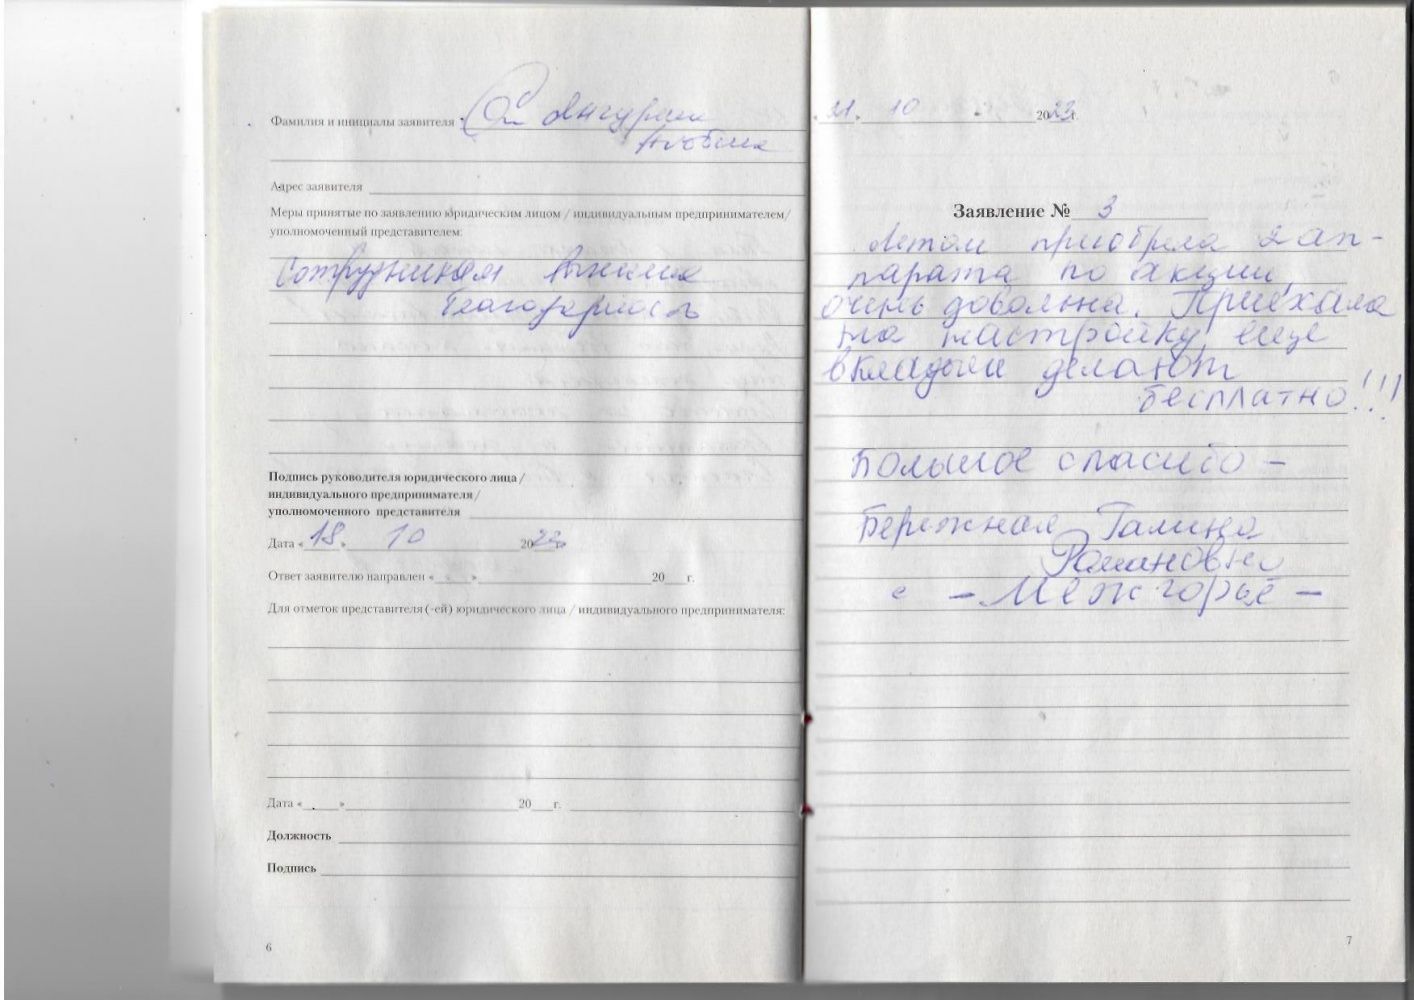 Фамилия и инициалы заявителя
Адрес заявителя
Меры принятые по заявлению юридическим лицом / индивидуальным предпринимателем/
уполномоченный представителем:
Сотрудникам
благодарность
Подпись руководителя юридического лица/
индивидуального предпринимателя/
уполномоченного представителя
Дата «18» 10 2022г.
Ответ заявителю направлен «___»___ 20__г.
Для отметок представителя (-ей) юридического лица / индивидуального предпринимателя:
Дата «___»___ 20__г.
Должность
Подпись
6
10 20 г.
Заявление № 3
Летом приобрела 2 ап-
парата по акции,
очень довольна. Приехала
на настройку, еще
вкладыши делают
бесплатно!!!
Большое спасибо –
Бережная Галина
Романовна
с – Межгорье –
7